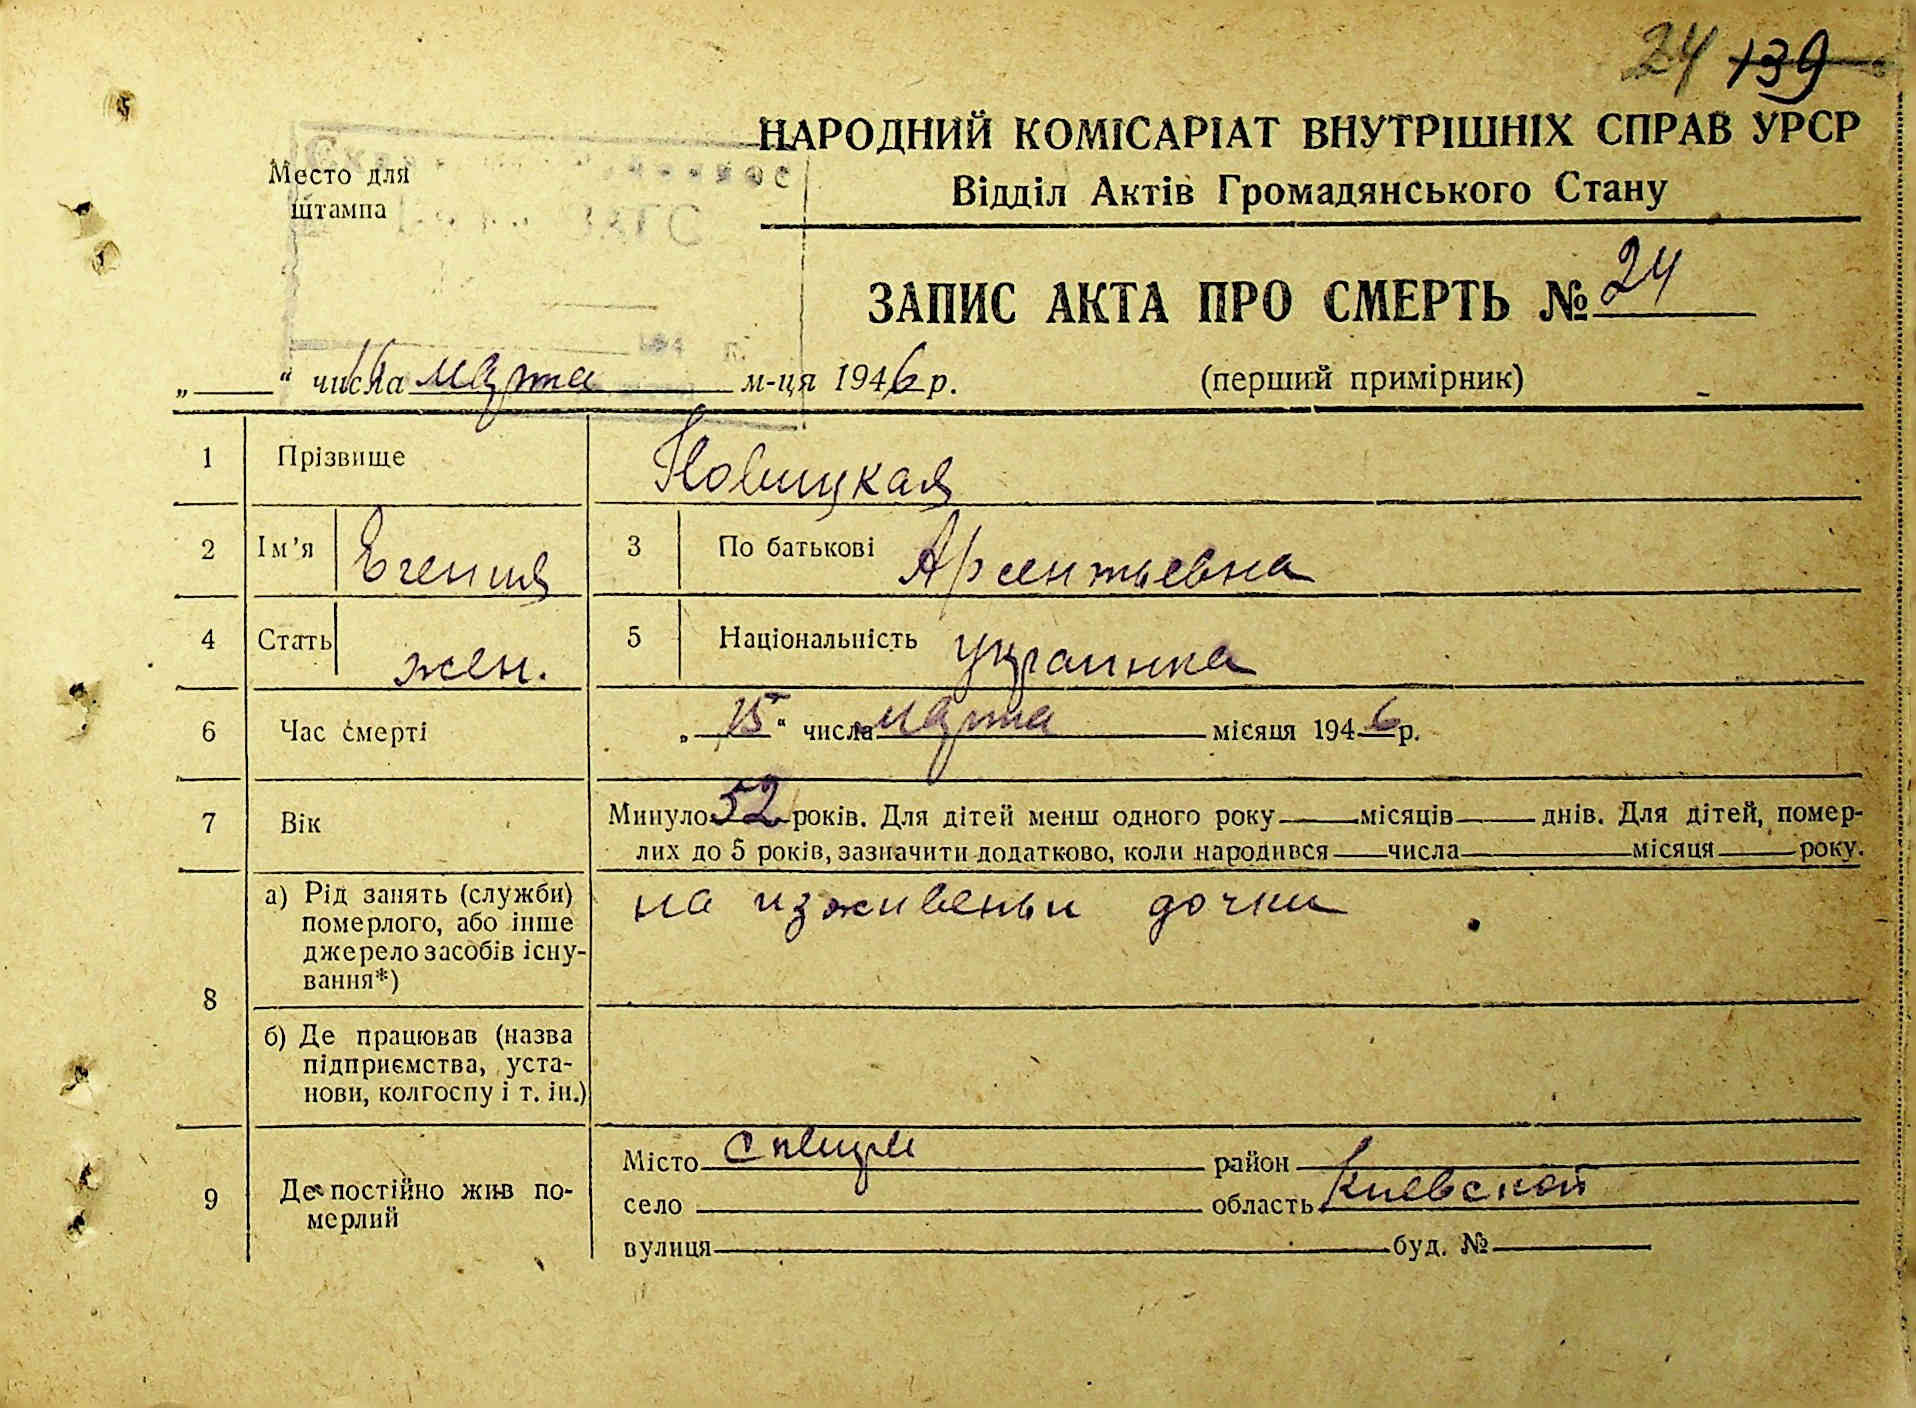 24 139
НАРОДНИЙ КОМІСАРІАТ ВНУТРІШНІХ СПРАВ УРСР
Відділ Актів Громадянського Стану
Место для
штампа
ЗАПИС АКТА ПРО СМЕРТЬ № 24
„ “ числа 16 марта м-ця 1946 р.
(перший примірник)
1 Прізвище Новицкая
2 Ім’я Евгения 3 По батькові Арсентьевна
4 Стать жен. 5 Національність украинка
6 Час смерті „15“ числа марта місяця 1946 р.
7 Вік Минуло 52 років. Для дітей менш одного року місяців днів. Для дітей, помер-
лих до 5 років, зазначити додатково, коли народився числа місяця року.
8 а) Рід занять (служби) на изживеньи дочки
померлого, або інше
джерело засобів існу-
вання*)
б) Де працював (назва
підприємства, уста-
нови, колгоспу і т. ін.)
9 Де постійно жив по-
мерлий
Місто район
село область Киевской
вулиця буд. №